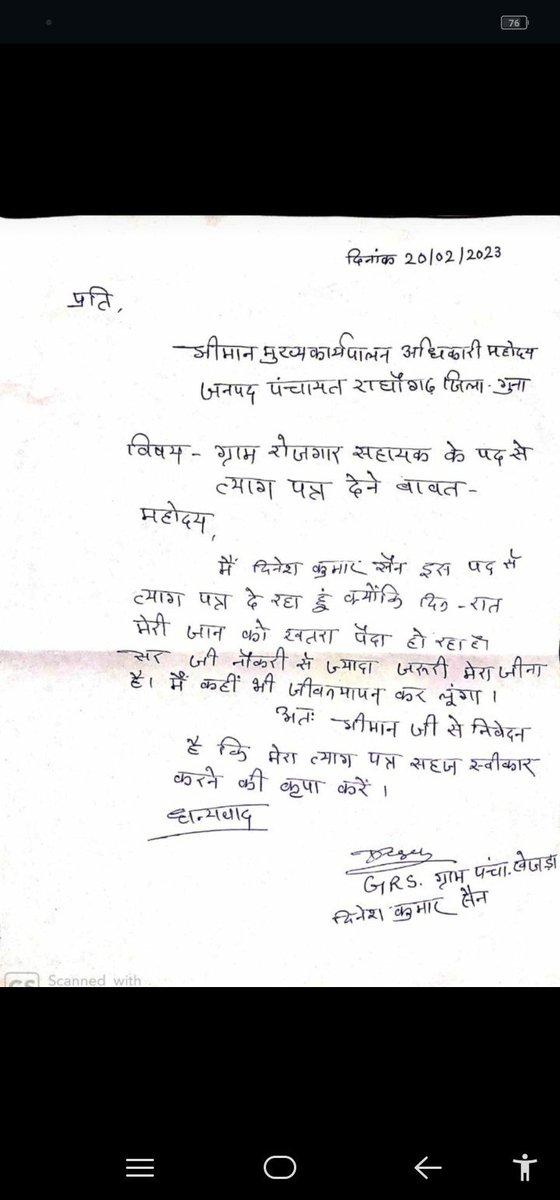 76
दिनांक 20/02/2023
प्रति,
श्रीमान मुख्यकार्यपालन अधिकारी महोदय
जनपद पंचायत राघौगढ़ जिला-गुना
विषय - ग्राम रोजगार सहायक के पद से
त्याग पत्र देने बावत -
महोदय,
मैं दिनेश कुमार सैन इस पद से
त्याग पत्र दे रहा हूं क्योंकि दिन-रात
मेरी जान को खतरा पैदा हो रहा है।
सर जी नौकरी से ज्यादा जरूरी मेरा जीना
है। मैं कहीं भी जीवनयापन कर लूंगा।
अतः श्रीमान जी से निवेदन
है कि मेरा त्याग पत्र सहज स्वीकार
करने की कृपा करें।
धन्यवाद
GRS. ग्राम पंचा. खेजड़ा
दिनेश कुमार सैन
CS Scanned with